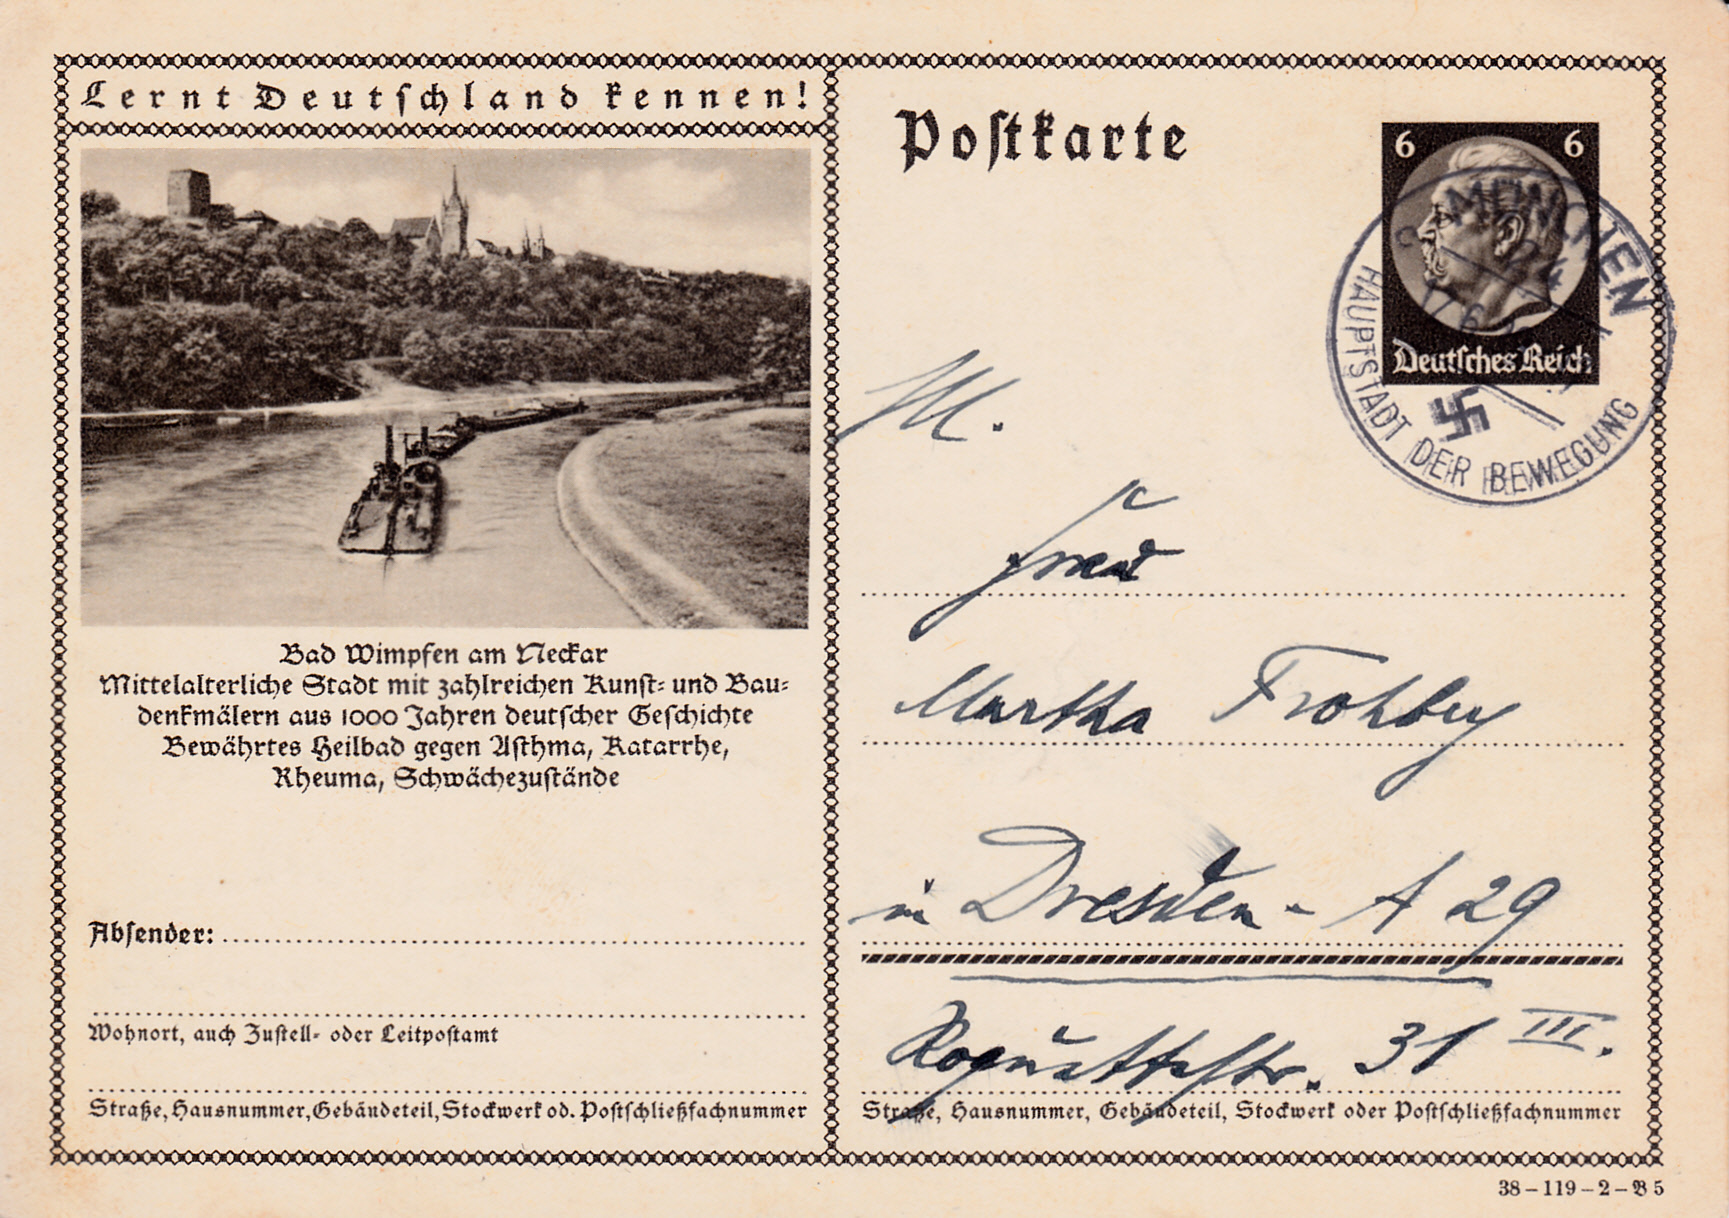 Lernt Deutschland kennen!
Bad Wimpfen am Neckar
Mittelalterliche Stadt mit zahlreichen Kunst- und Bau-
denkmälern aus 1000 Jahren deutscher Geschichte
Bewährtes Heilbad gegen Asthma, Katarrhe,
Rheuma, Schwächezustände
Absender:
Wohnort, auch Zustell- oder Leitpostamt
Straße, Hausnummer, Gebäudeteil, Stockwerk od. Postschließfachnummer
Postkarte
6 6
Deutsches Reich
MÜNCHEN
HAUPTSTADT DER BEWEGUNG
Frau
Martha Frohberg
in Dresden - A 29
31 III.
Straße, Hausnummer, Gebäudeteil, Stockwerk oder Postschließfachnummer
38-119-2-B 5